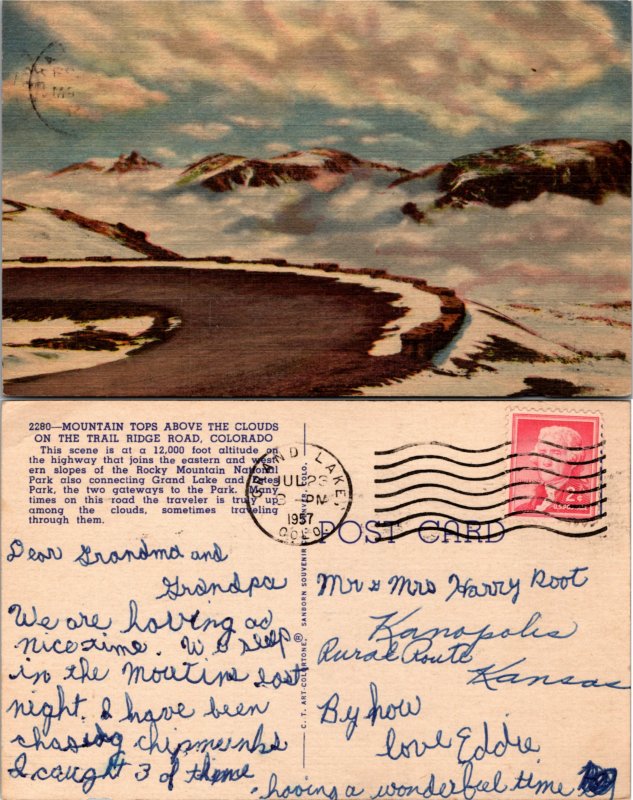 2280—MOUNTAIN TOPS ABOVE THE CLOUDS
ON THE TRAIL RIDGE ROAD, COLORADO
This scene is at a 12,000 foot altitude on
the highway that joins the eastern and west-
ern slopes of the Rocky Mountain National
Park also connecting Grand Lake and Estes
Park, the two gateways to the Park. Many
times on this road the traveler is truly up
among the clouds, sometimes traveling
through them.
GRAND LAKE
JUL 23
PM
1957
COLO.
2¢
POST CARD
C. T. ART-COLORTONE® SANBORN SOUVENIR DENVER, COLO.
Dear Grandma and
Grandpa
We are having ad
nice time. We sleep
in the moutins last
night. I have been
chasing chipmunks
I caught 3 of theme
Mr & Mrs Harry Root
Kanopolis
Rural Route
Kansas
By now
love Eddie
having a wonderful time